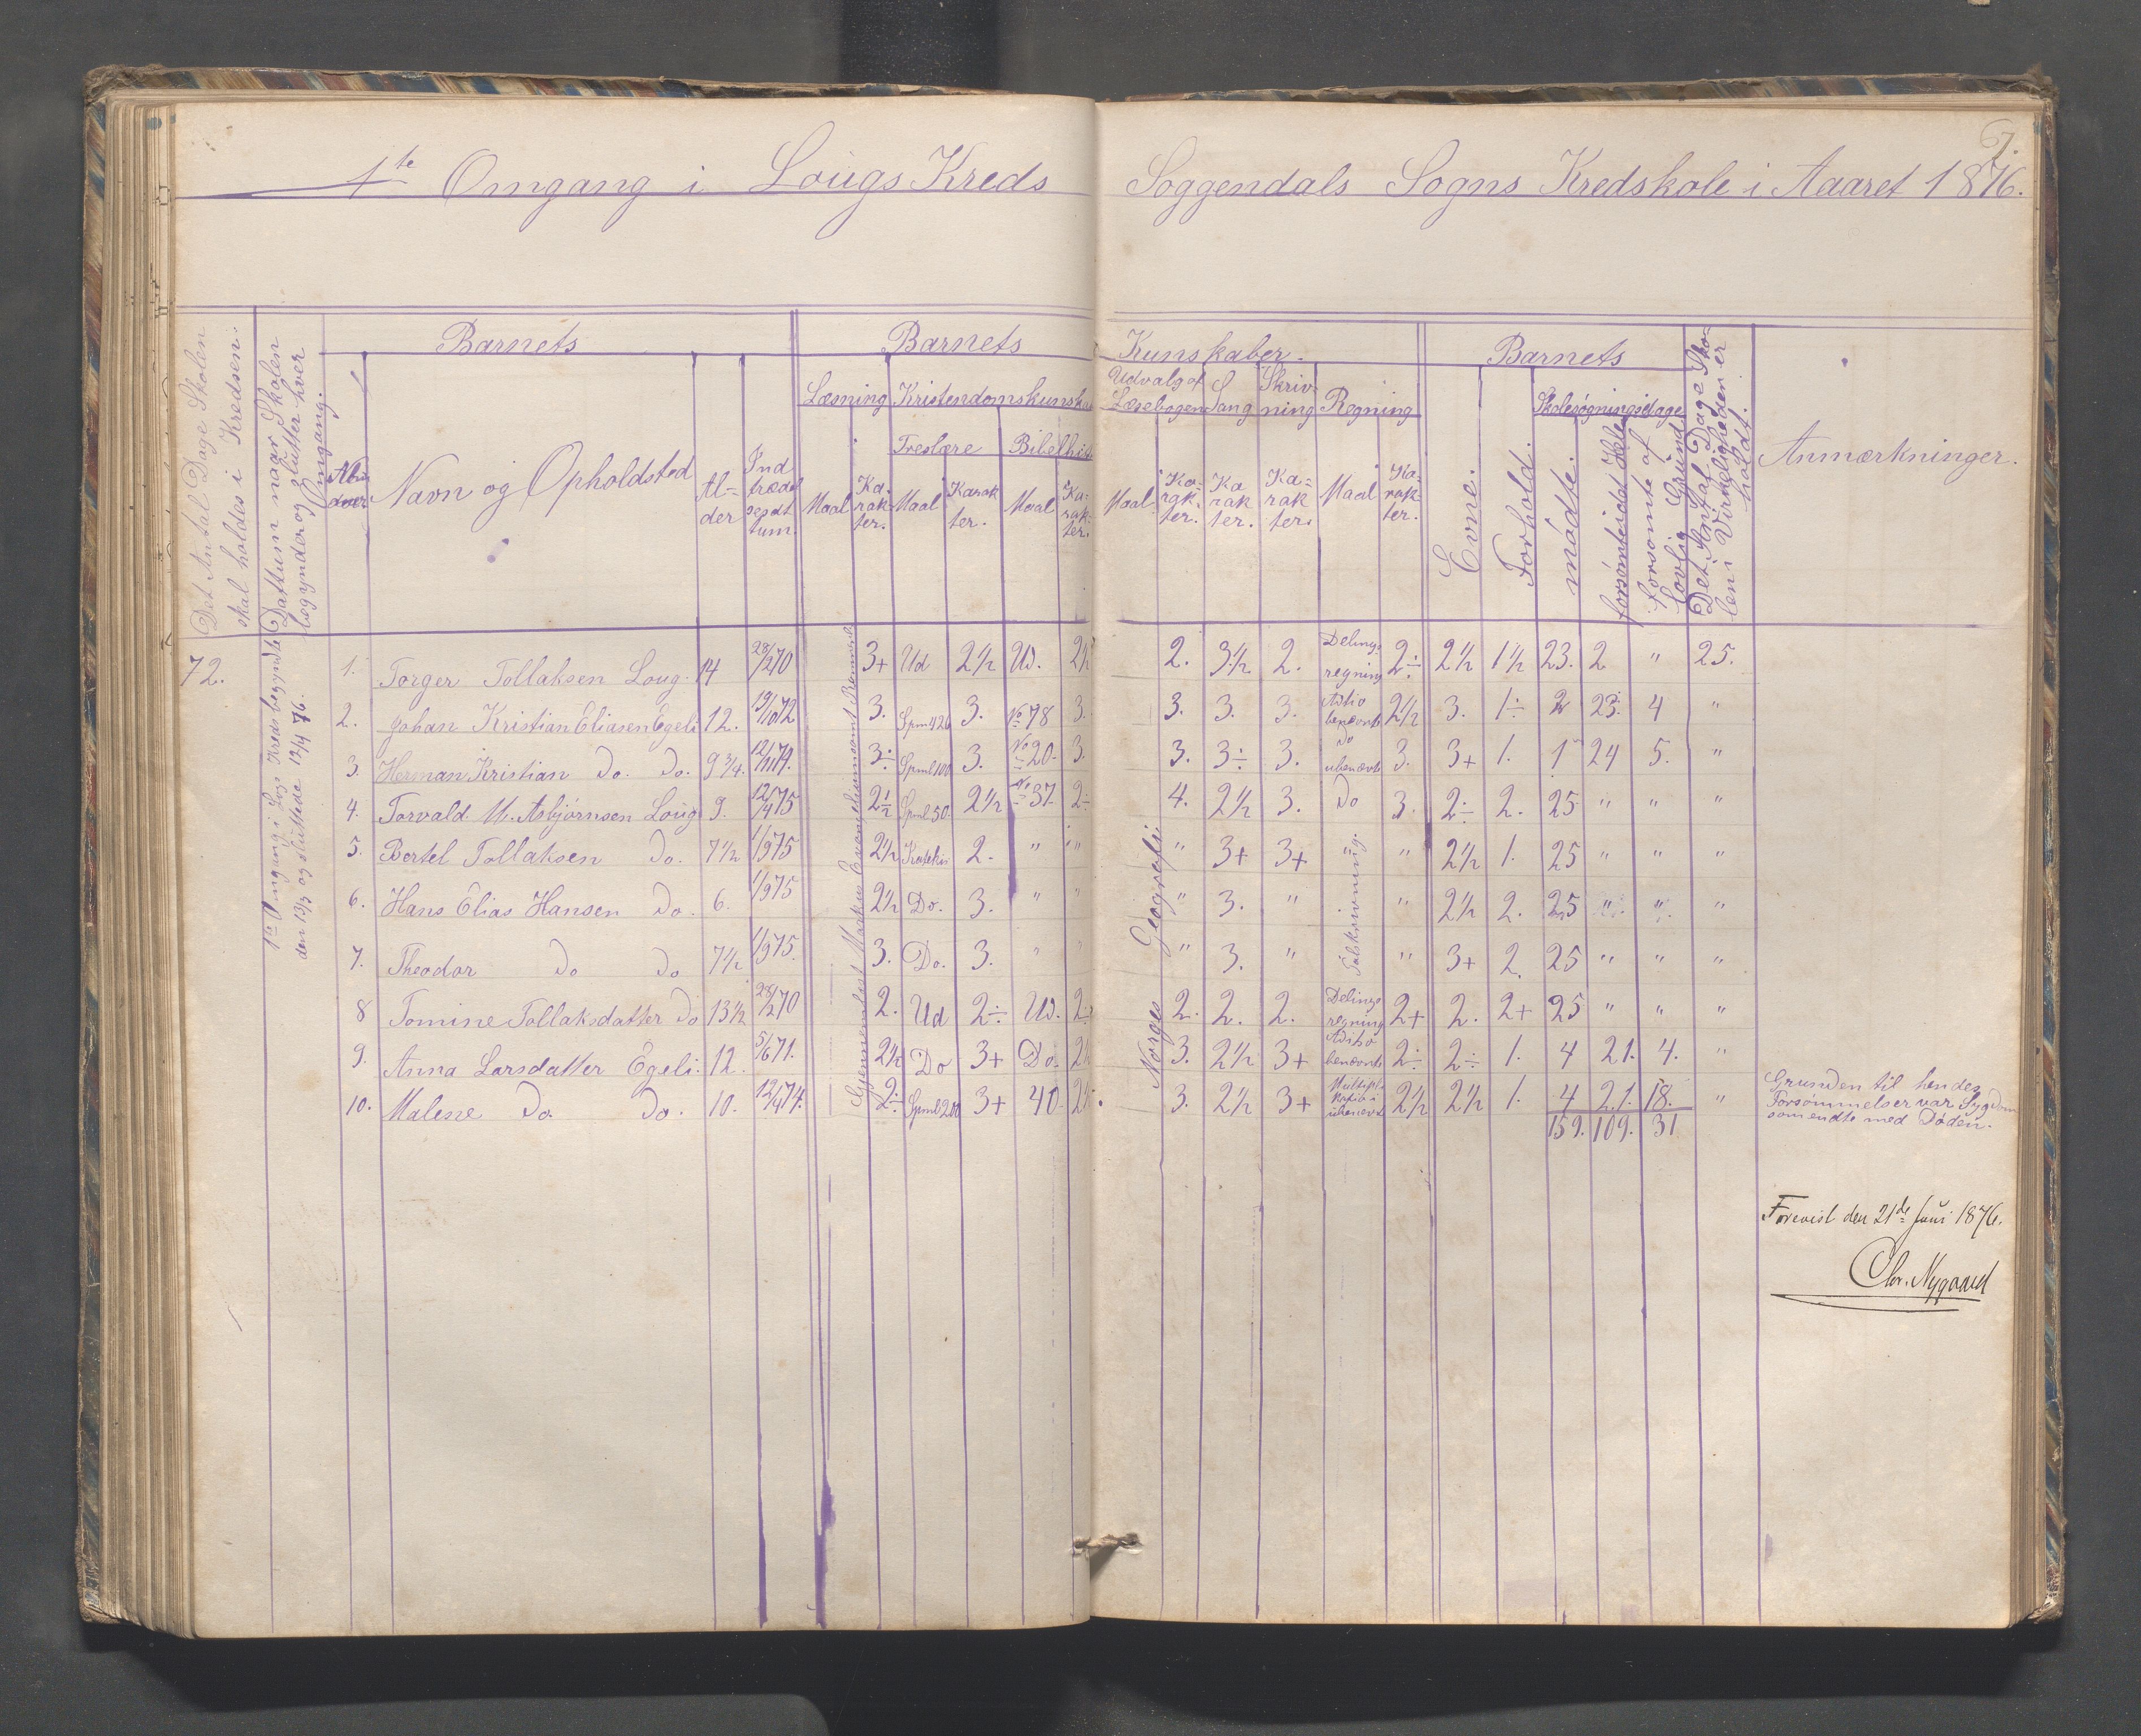 7.
1te Omgang i Lougs Kreds Soggendals Sogns Kredskole i Aaret 1876.
Det Antal Dage Skolen skal holdes i Kredsen.
Dattum naar Skolen begynder og slutter hver Omgang.
Barnets
Navn og Opholdsted
Al=
der
Ind
trædel
sesdt
tum.
Barnets Kunskaber.
Læsning Kristendomskunskab
Troslære Bibelhist
Maal Ka=rak=ter. Maal Karak ter. Maal Ka=rak=ter.
Udvalg af Læsebogen Sang Skriv=ning Regning
Maal Ka=rak=ter. Ka rak ter. Ka=rak ter. Maal Ka=rak=ter.
Barnets
Evne. Forhold.
Skolesøgningsdage
mødte. forsømte i det Hele forsømte af lovlig Grund
Det Antal Dage Sko=len i Virkeligheden er holdt.
Anmærkninger.
72.
1te Omgang i Logs Kreds begyndte
den 13/3 og sluttede 12/4 76.
Gjennemlæst Markus Evangelium samt
Norges Geografi
1. Torger Tollaksen Loug 14 28/2 70 3+ Ud 2½ Ud. 2½ 2. 3½ 2. Delings regning 2÷ 2½ 1½ 23. 2 " 25.
2. Johan Kristian Eliasen Egeli 12. 19/10 72 3. Spm 426 3. No 78 3. 3. 3. 3. Aditio benævnte 2½ 3. 1÷ 2 23. 4 "
3. Herman Kristian Do. Do. 9¾. 12/11 74. 3÷ Spml 100 3. No 20. 3. 3. 3÷ 3. Do ubenævnte 3. 3+ 1. 1 24 5. "
4. Torvald M. Asbjørnsen Loug 9. 12/4 75 2½ Spml 50. 2½ No 37 2÷ 4. 2½ 3. Do 3. 2÷ 2. 25 " " "
5. Bertel Tollaksen Do. 7½ 1/9 75 2½ Kateki 2. " " " 3+ 3+ Talskrivning " 2½ 1. 25 " " "
6. Hans Elias Hansen Do. 6. 1/9 75 2½ Do. 3. " " " 3. " " 2½ 2. 25 " " "
7. Theodor Do Do 7½ 1/9 75. 3. Do. 3. " " " 3. " " 3+ 2. 25 " " "
8 Tomine Tollaksdatter Do 13½ 28/2 70 2. Ud 2÷ Ud. 2÷ 2. 2. 2. Delings regning 2+ 2. 2+ 25 " " "
9. Anna Larsdatter Egeli. 12. 5/6 71. 2½ Do 3+ Do. 2½ 3. 2½ 3+ Aditio benævnte 2÷ 2÷ 1. 4 21. 4. "
10. Malene Do. Do. 10. 12/4 74. 2÷ Spml 200 3+ 40 2½ 3. 2½ 3+ Multipli kation ubenævnt 2½ 2½ 1. 4 21. 18. "
Grunden til hendes
Forsømmelser var Sygdom
som endte med Døden.
159. 109. 31
Forevist den 21de Juni 1876.
Chr. Nygaard